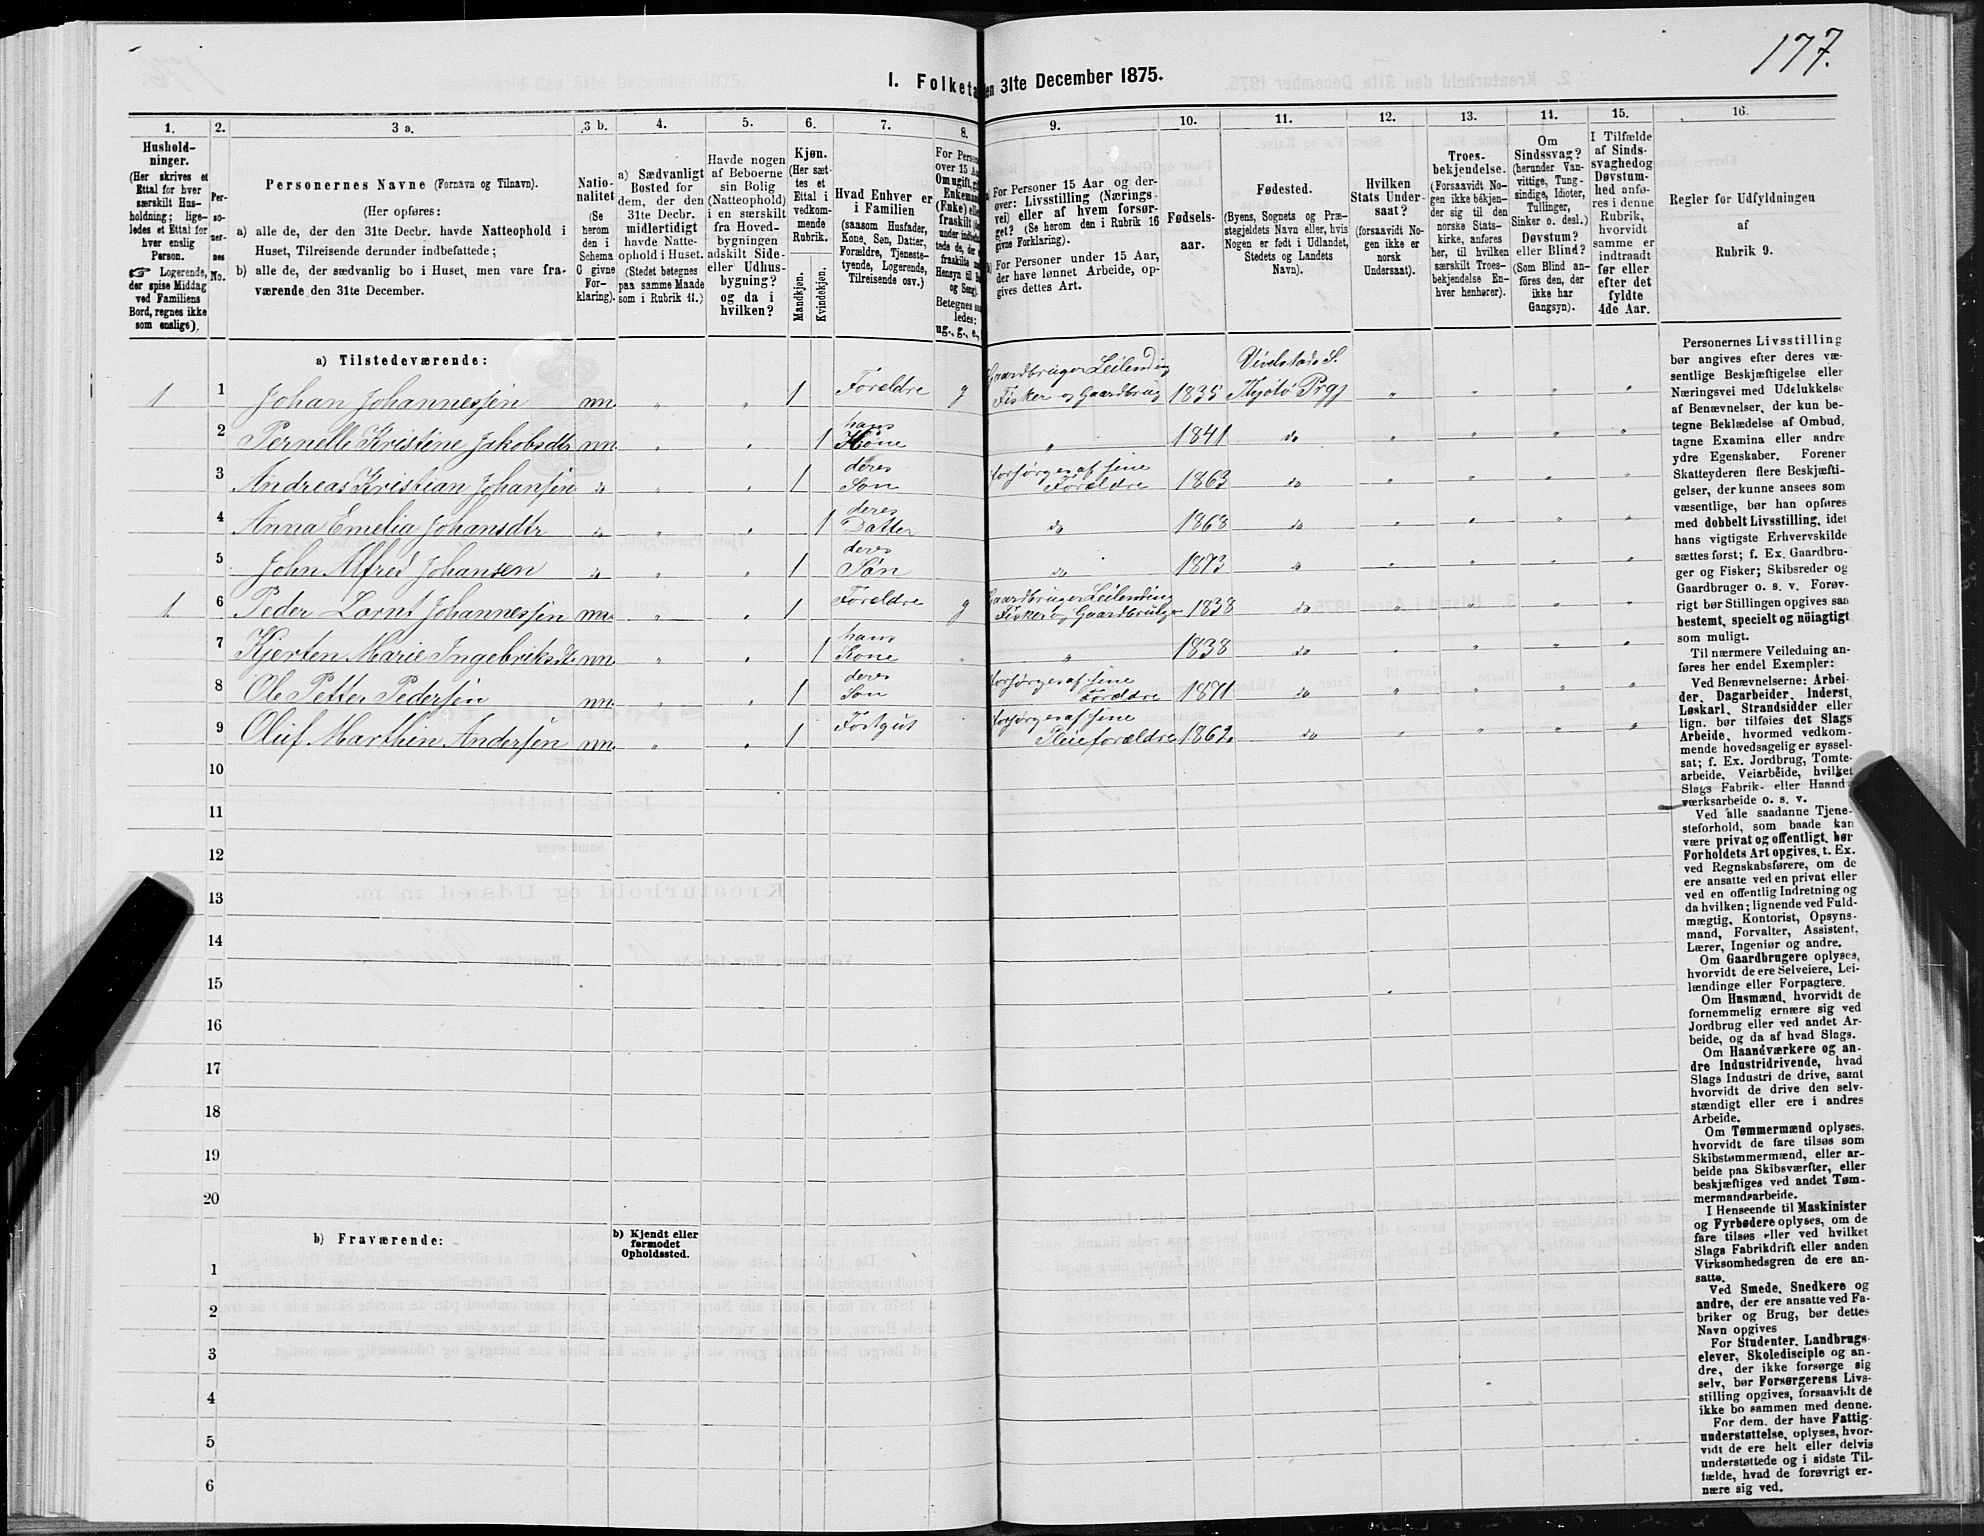 177.
I. Folketa en 31te December 1875.
1. 2. 3 a. 3 b. 4. 5. 6. 7. 8. 9. 10. 11. 12. 13. 14. 15. 16.
Hushold-
ninger.
(Her skrives et
Ettal for hver
særskilt Hus-
holdning; lige-
ledes et Ettal for
hver enslig
Person.
☞ Logerende,
der spise Middag
ved Familiens
Bord, regnes ikke
som enslige).
Per-
so-
ner-
nes
No.
Personernes Navne (Fornavn og Tilnavn).
(Her opføres:
a) alle de, der den 31te Decbr. havde Natteophold i
Huset, Tilreisende derunder indbefattede;
b) alle de, der sædvanlig bo i Huset, men vare fra-
værende den 31te December.
Natio-
nalitet
(Se
herom
den i
Schema
C givne
For-
klaring).
a) Sædvanligt
Bosted for
dem, der den
31te Decbr.
midlertidigt
havde Natte-
ophold i Huset.
(Stedet betegnes
paa samme Maade
som i Rubrik 11.)
Havde nogen
af Beboerne
sin Bolig
(Natteophold)
i en særskilt
fra Hoved-
bygningen
adskilt Side-
eller Udhus-
bygning?
og da i
hvilken?
Kjøn.
(Her sæt-
tes et
Ettal i
vedkom-
mende
Rubrik.
Mandkjøn.
Kvindekjøn.
Hvad Enhver er
i Familien
(saasom Husfader,
Kone, Søn, Datter,
Forældre, Tjeneste-
tyende, Logerende,
Tilreisende osv.)
For Person
over 15 Aa
Om ugift, gi
Enkeman
(Enke) elle
fraskilt
under indb
tede de, d
fraskilte
Hensyn til B
og Seng).
Betegnes saa
ledes:
ug., g., e.,
a) For Personer 15 Aar og der-
over: Livsstilling (Nærings
vei) eller af hvem forsør-
get? (Se herom den i Rubrik 16
givne Forklaring).
b) For Personer under 15 Aar,
der have lønnet Arbeide, op-
gives dettes Art.
Fødsels-
aar.
Fødested.
(Byens, Sognets og Præ-
stegjeldets Navn eller, hvis
Nogen er født i Udlandet,
Stedets og Landets
Navn).
Hvilken
Stats Under-
saat?
(forsaavidt No-
gen ikke er
norsk
Undersaat).
Troes-
bekjendelse.
(Forsaavidt No-
gen ikke bekjen-
der sig til den
norske Stats-
kirke, anføres
her, til hvilken
særskilt Troes-
bekjendelse En-
hver henhører).
Om
Sindssvag?
(herunder Van-
vittige, Tung-
sindige, Idioter,
Tullinger,
Sinker o. desl.)
Døvstum?
eller Blind?
(Som Blind an-
føres den, der
ikke har
Gangsyn).
I Tilfælde
af Sinds-
svaghed og
Døvstum-
hed anfø-
res i denne
Rubrik,
hvorvidt
samme er
indtraadt
før eller
efter det
fyldte
4de Aar.
Regler for Udfyldningen
af
Rubrik 9.
a) Tilstedeværende:
1 1 Johan Johannessen nn. „ „ 1 Forældre g Gaardbruger Leilending Fisker og Gaardbrug 1835 Vivelstads S. Kjøtø Prgj „ „ „ „
2 Pernelle Kristine Jakobsdtr nn. „ „ 1 hans Kone „ 1841 do „ „ „ „
3 Andreas Kristian Johansen do „ „ 1 deres Søn forsørges af sine Forældre 1863 do „ „ „ „
4 Anna Emelia Johansdtr do „ „ 1 deres Datter do 1868 do „ „ „ „
5 John Alfred Johansen do „ „ 1 deres Søn do 1873 do „ „ „ „
1 6 Peder Lornt Johannessen nn. „ „ 1 Forældre g Gaardbruger Leilending Fisker og Gaardbruger 1838 do „ „ „ „
7 Kjersten Marie Ingebriksdt nn. „ „ 1 hans Kone „ „ 1838 do „ „ „ „
8 Ole Petter Pedersen nn. „ „ 1 deres Søn forsørges af sine Forældre 1871 do „ „ „ „
9 Oluf Marthin Andersen nn. „ „ 1 Fostgut forsørges af sine Pleieforældre 1862 do „ „ „ „
10
11
12
13
14
15
16
17
18
19
20
b) Fraværende:
b) Kjendt eller
formodet
Opholdssted.
1
2
3
4
5
6
Personernes Livsstilling
bør angives efter deres væ-
sentlige Beskjæftigelse eller
Næringsvei med Udelukkelse
af Benævnelser, der kun be-
tegne Beklædelse af Ombud,
tagne Examina eller andre
ydre Egenskaber. Forener
Skatteyderen flere Beskjæfti-
gelser, der kunne ansees som
væsentlige, bør han opføres
med dobbelt Livsstilling, idet
hans vigtigste Erhvervskilde
sættes først; f. Ex. Gaardbru-
ger og Fisker; Skibsreder og
Gaardbruger o. s. v. Forøv-
rigt bør Stillingen opgives saa
bestemt, specielt og nöiagtigt
som muligt.
Til nærmere Veiledning an-
føres her endel Exempler:
Ved Benævnelserne: Arbei-
der, Dagarbeider, Inderst,
Løskarl, Strandsidder eller
lign. bør tilføies det Slags
Arbeide, hvormed vedkom-
mende hovedsagelig er syssel-
sat; f. Ex. Jordbrug, Tomte-
arbeide, Veiarbeide, hvilket
Slags Fabrik- eller Haand-
værksarbeide o. s. v.
Ved alle saadanne Tjene-
steforhold, som baade kan
være privat og offentligt, bør
Forholdets Art opgives, t. Ex.
ved Regnskabsførere, om de
ere ansatte ved en privat eller
ved en offentlig Indretning og
da hvilken; lignende ved Fuld-
mægtig, Kontorist, Opsyns-
mand, Forvalter, Assistent,
Lærer, Ingeniør og andre.
Om Gaardbrugere oplyses,
hvorvidt de ere Selveiere, Lei-
lændinge eller Forpagtere.
Om Husmænd, hvorvidt de
fornemmelig ernære sig ved
Jordbrug eller ved andet Ar-
beide, og da af hvad Slags.
Om Haandværkere og an-
dre Industridrivende, hvad
Slags Industri de drive, samt
hvorvidt de drive den selv-
stændigt eller ere i andres
Arbeide.
Om Tømmermænd oplyses,
hvorvidt de fare tilsøs som
Skibstømmermænd, eller ar-
beide paa Skibsværfter, eller
beskjæftiges ved andet Tøm-
mermandsarbeide.
I Henseende til Maskinister
og Fyrbødere oplyses, om de
fare tilsøs eller ved hvilket
Slags Fabrikdrift eller anden
Virksomhedsgren de ere an-
satte.
Ved Smede, Snedkere og
andre, der ere ansatte ved Fa-
briker og Brug, bør dettes
Navn opgives
For Studenter, Landbrugs-
elever, Skoledisciple og an-
dre, der ikke forsørge sig
selv, bør Forsørgerens Livs-
stilling opgives, forsaavidt de
ikke bo sammen med denne.
For dem, der have Fattig-
understøttelse, oplyses, hvor-
vidt de ere helt eller delvis
understøttede og i sidste Til-
fælde, hvad de forøvrigt er-
nære sig ved.